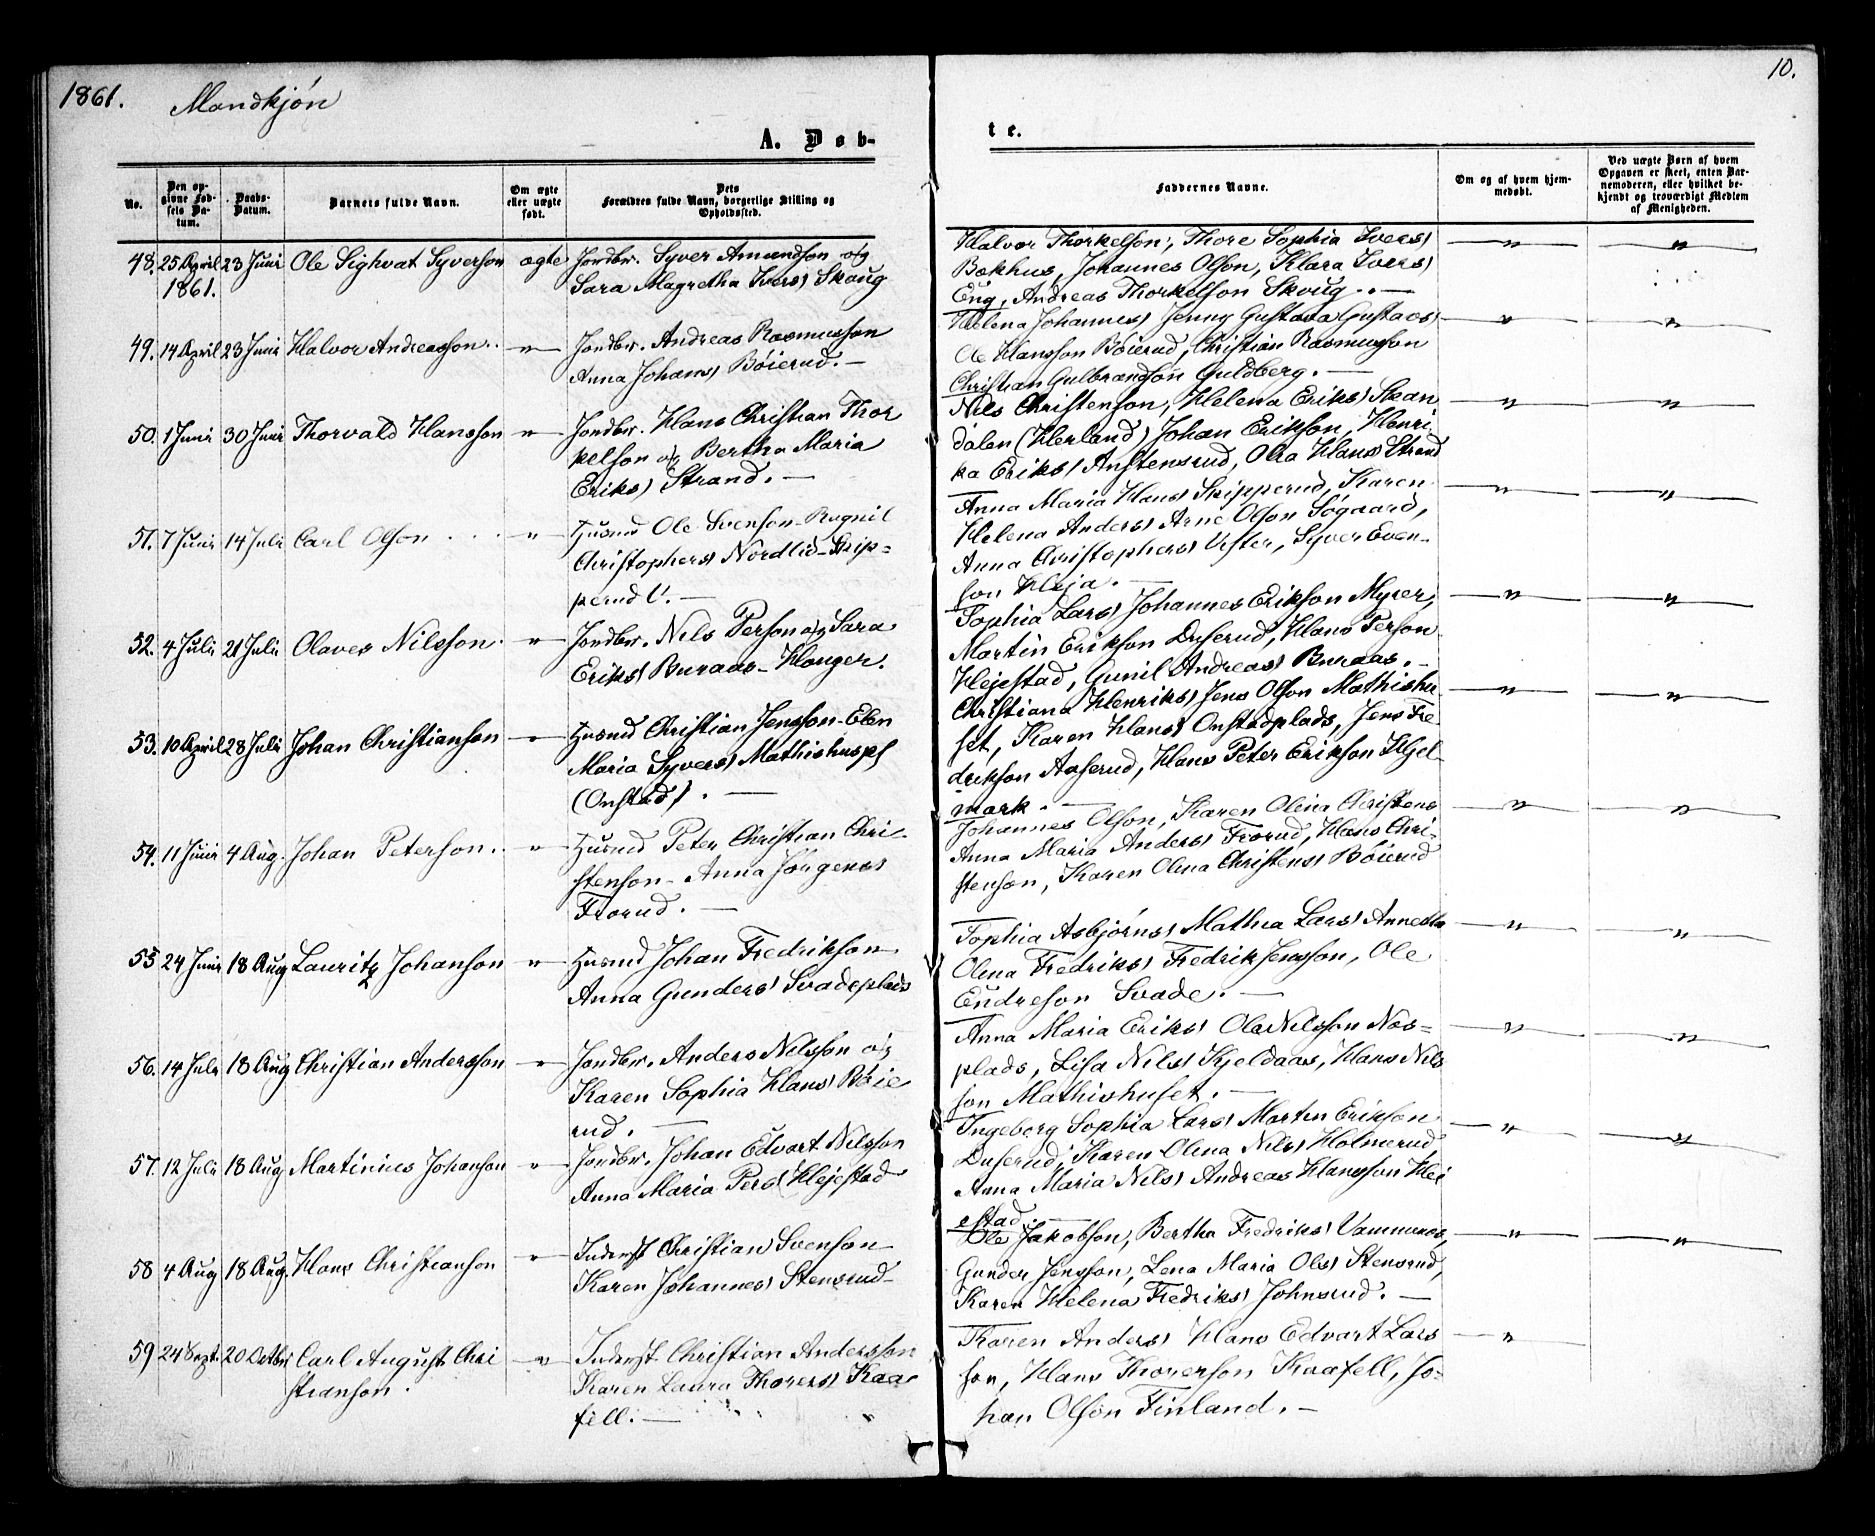 1861. Mandkjøn
10.
A. Døb-
te.
No.
Den op-
givne Fød-
sels Da-
tum.
Daabs-
Datum.
Barnets fulde Navn.
Om ægte
eller uægte
født.
Dets
Forældres fulde Navn, borgerlige Stilling og
Opholdssted.
Faddernes Navne.
Om og af hvem hjem-
medøbt.
Ved uægte Børn af hvem
Opgaven er skeet, enten Bar-
nemoderen, eller hvilket be-
kjendt og troværdigt Medlem
af Menigheden.
48. 25 April 23 Juni Ole Sighvat Syverson ægte Jordbr. Syver Amundson og
1861. Sara Magretha Ivers) Skaug
Halvor Thorkelson, Thore Sophia Ivers)
Bakhus, Johannes Olson, Klara Ivers)
Eng, Andreas Thorkelson Skoug. —
49. 14 April 23 Juni Halvor Andreasson. " Jordbr. Andreas Rasmusson
Anna Johans) Böierud. —
Helena Johannes) Jenny Gustava Gustavs)
Ole Hansson Böierud, Christian Rasmusson
Christian Gulbrandson Guldberg. —
50. 1 Juni 30 Juni Thorvald Hansson " Jordbr. Hans Christian Thor
kelson og Bertha Maria
Eriks) Strand. —
Nils Christenson, Helena Eriks) Skan
dalen (Herland) Johan Erikson, Henri-
ka Eriks) Anstensrud, Olea Hans) Strand
51. 7 Juni 14 Juli Carl Olson " Husmd Ole Svenson - Ragnil
Christophers) Nordlid - Skip-
perud U. —
Anna Maria Hans) Skipperud, Karen
Helena Anders) Arne Olson Sögaard,
Anna Christophers) Vester, Syver Even-
son Heja. —
52. 4 Juli 21 Juli Olaves Nilsson. " Jordbr. Nils Person og Sara
Eriks) Buraas - Hanger.
Sophia Lars) Johannes Erikson Myrer,
Martin Erikson Duserud, Hans Person
Hejestad, Gunil Andreas) Buraas. -
53. 10 April 28 Juli Johan Christianson " Husmd Christian Jensson - Elen
Maria Syvers) Mathishuspl
(Onstad). —
Christiana Henriks) Jens Olson Mathishu
set, Karen Hans) Onstadplads, Jens Fre
drikson Aaserud, Hans Peter Erikson Hjel-
mark. —
54. 11 Juni 4 Aug. Johan Peterson. " Husmd Peter Christian Chri-
stenson - Anna Jörgens
Frorud. —
Johannes Olson, Karen Olina Christens
Anna Maria Anders) Frorud, Hans Chri-
stenson, Karen Olina Christens) Böierud
55 24 Juni 18 Aug Lauritz Johanson " Husmd Johan Fredrikson
Anna Gunders) Svadeplads
Sophia Asbjörns) Mathea Lars)
Olina Fredriks) Fredrik Jensson, Ole
Eudreson Svade. —
56. 14 Juli 18 Aug Christian Andersson " Jordbr. Anders Nilsson og
Karen Sophia Hans) Böie
rud. —
Anna Maria Eriks) Ole Nilsson Næs-
plads, Lisa Nils) Kjeldaas, Hans Nils
son Mathishuset. —
57. 12 Juli 18 Aug Martinius Johanson " Jordbr. Johan Edvart Nilsson
Anna Maria Pers) Hejestad
Ingeborg Sophia Lars) Martin Erikson
Duserud, Karen Olina Nils) Holmerud
Anna Maria Nils) Andreas Hansson Hei
estad. —
58 4 Aug 18 Aug. Hans Christianson " Inderst Christian Svenson
Karen Johannes) Stensrud
Ole Jakobson, Bertha Fredriks)
Gunder Jensson, Lena Maria Ols) Stensrud,
Karen Helena Fredriks) Johnsrud. —
59 24 Sept. 20 Octbr Carl August Chri " Inderst Christian Andersson
stianson. Karen Laura Thorers) Kaa-
fell. —
Karen Anders) Hans Edvart Lars
son, Hans Thorerson Kaafell, Jo-
han Olson Finland. —